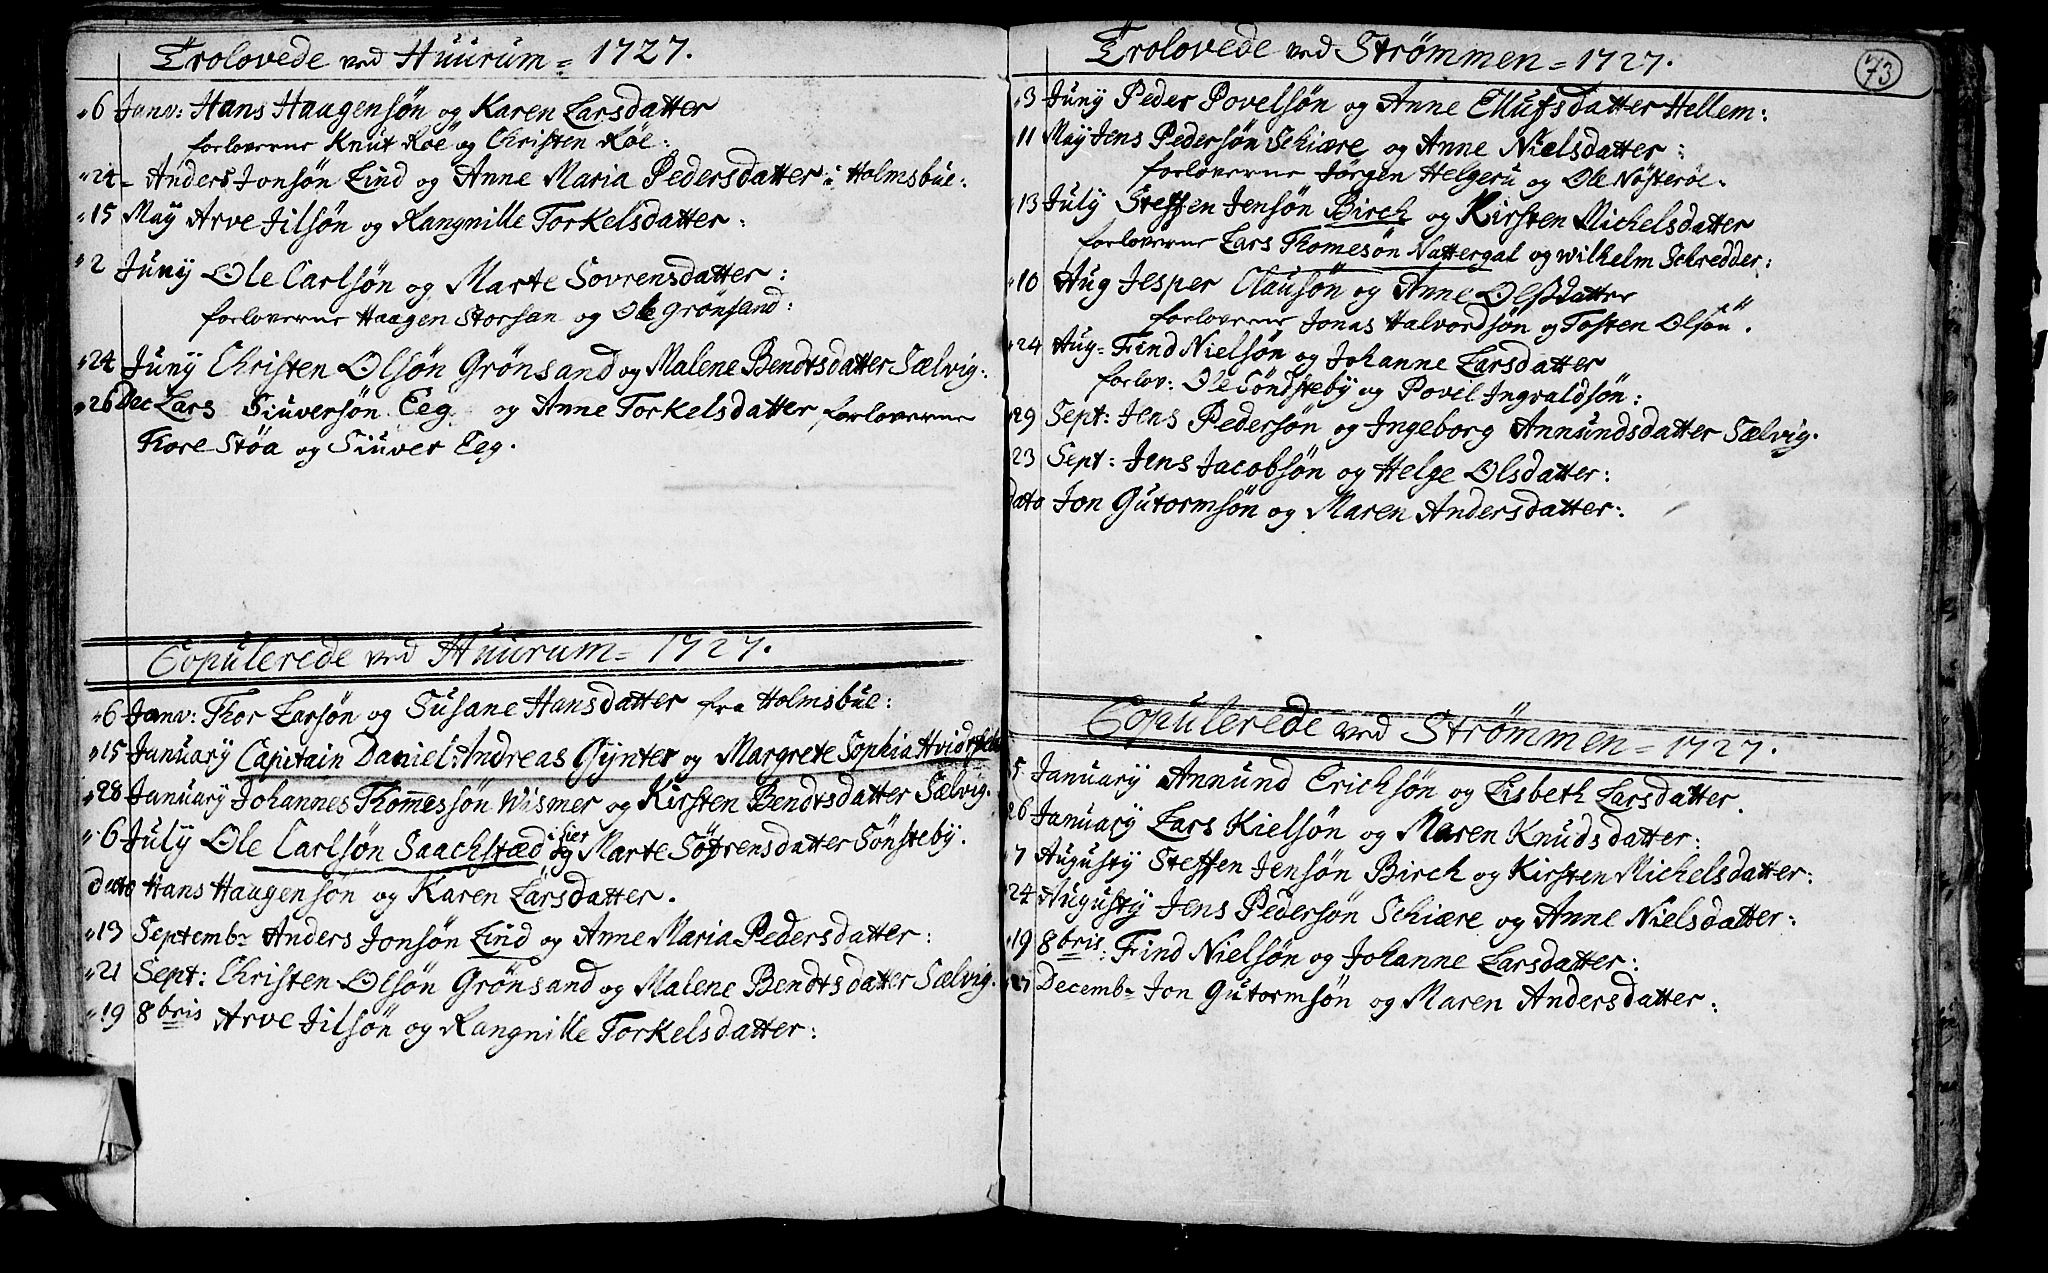 Trolovede ved Huurum = 1727.
6 Janv: Hans Haagensøn og Karen Larsdatter
forloverne Knut Røe og Christen Røe:
24 - Anders Jonsøn Lind og Anne Maria Pedersdatter i Holmsbue:
15 May Arve Jilsøn og Rangnille Torkelsdatter:
2 Juny Ole Carlsøn og Marte Sovrensdatter:
forloverne Haagen Storsan og Ole Grønsand:
24 Juny Christen Olsøn Grønsand og Malene Bendtsdatter Sælvig:
26 Dec Lars Siuversøn Eeg og Anne Torkelsdatter forloverne
Thore Støa og Siuver Eeg.
Copulerede ved Huurum = 1727.
6 Janv: Thor Larsøn og Susane Hansdatter fra Holmsbue:
15 January Capitain Daniel Andreas Gynter og Margrete Sophia
28 January Johannes Thommessøn Wismer og Kirsten Bendtsdatter Sælvig.
6 July Ole Carlsøn Saachstæd og Marte Søfrensdatter Sønsteby.
Dato Hans Haagensøn og Karen Larsdatter.
13 Septembr Anders Jonsøn Lind og Anne Maria Pedersdatter:
21 Sept: Christen Olsøn Grønsand og Malene Bendtsdatter Sælvig.
19 8bris Arve Jilsøn og Rangnille Torkelsdatter:
Trolovede ved Strømmen = 1727.
73
3 Juny Peder Povelsøn og Anne Ellufsdatter Hellem:
11 May Jens Pedersøn Schiære og Anne Nielsdatter:
forloverne Jørgen Helgeru og Ole Nøsterøe.
13 July Steffen Jensøn Birch og Kirsten Michelsdatter
forloverne Lars Thomesøn Nattergal og Wilhelm Schredder:
10 Aug Jesper Clausøn og Anne Olsdatter
forloverne Jonas Halvordsøn og Tosten Olsøn.
24 Aug= Find Nielsøn og Johanne Larsdatter
forlov: Ole Søndsteby og Povil Ingvaldsøn:
29 Sept: Jens Pedersøn og Ingeborg Annundsdatter Sælvig.
23 Sept: Jens Jacobsøn og Helge Olsdatter:
dato Jon Gutormsøn og Maren Andersdatter:
Copulerede ved Strømmen = 1727.
5 January Annund Erichsøn og Lisbeth Larsdatter.
26 January Lars Kielsøn og Maren Knudsdatter:
7 Augusty Steffen Jensøn Birch og Kirsten Michelsdatter:
24 Augusty Jens Pedersøn Schiære og Anne Nielsdatter:
19 8bris: Find Nielsøn og Johanne Larsdatter:
27 Decembr Jon Gutormsøn og Maren Andersdatter: